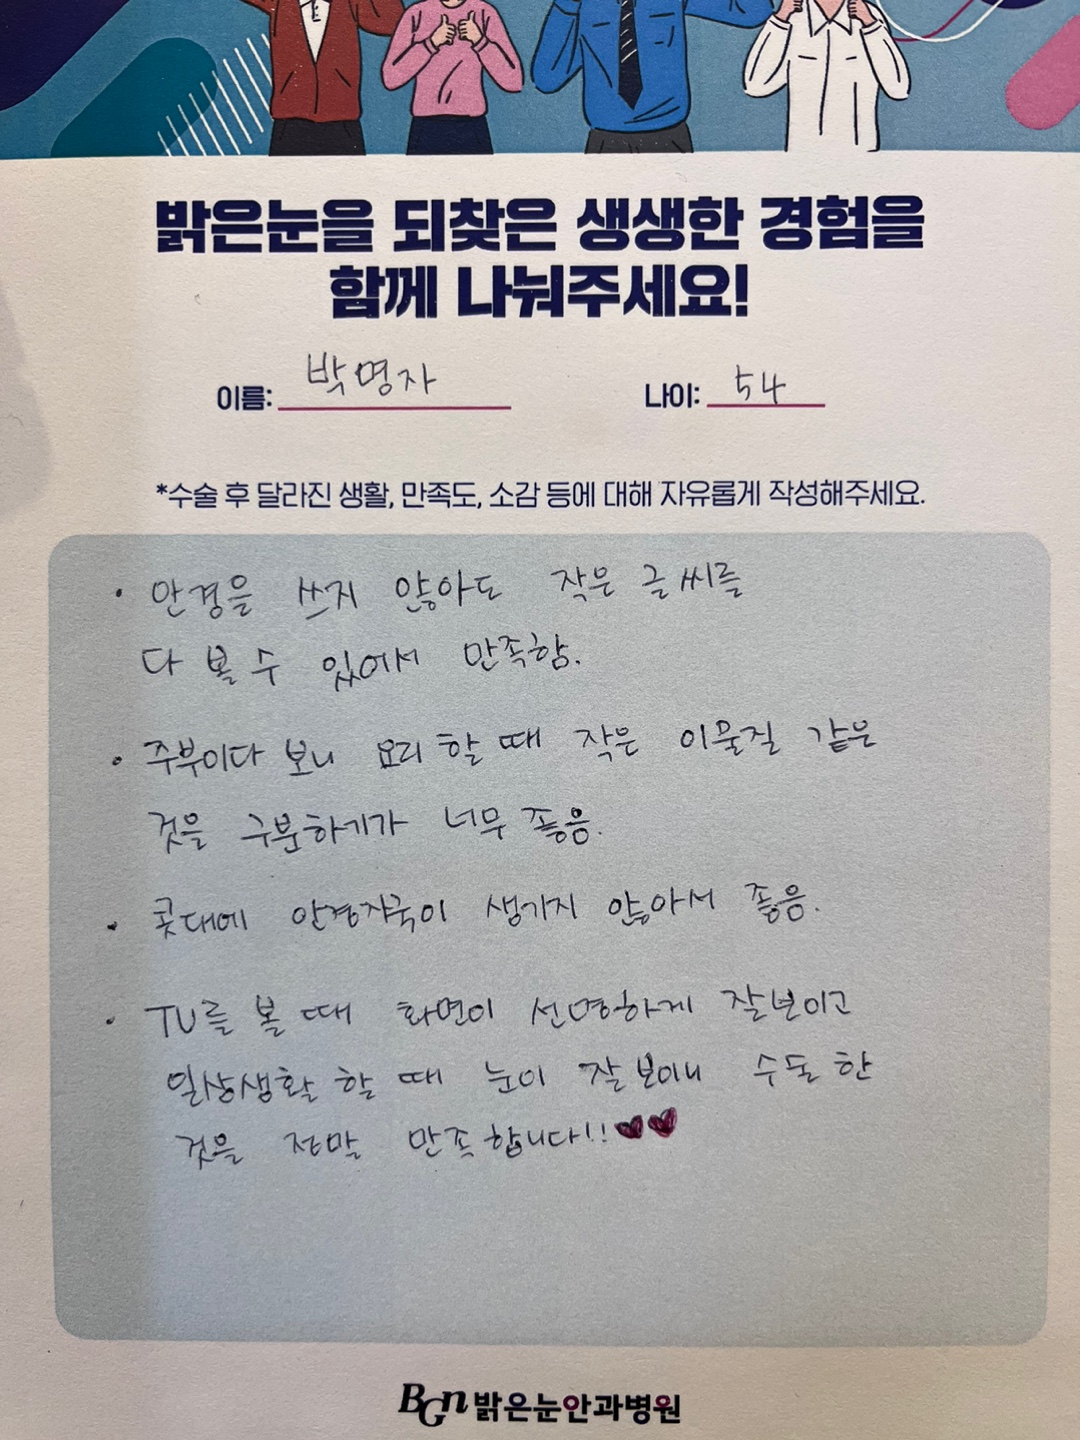 밝은눈을 되찾은 생생한 경험을
함께 나눠주세요!
이름: 박명자 나이: 54
*수술 후 달라진 생활, 만족도, 소감 등에 대해 자유롭게 작성해주세요.
· 안경을 쓰지 않아도 작은 글씨를
다 볼 수 있어서 만족함.
· 주부이다 보니 요리 할 때 작은 이물질 같은
것을 구분하기가 너무 좋음.
· 콧대에 안경자국이 생기지 않아서 좋음.
· TV를 볼 때 화면이 선명하게 잘보이고
일상생활 할 때 눈이 잘 보이니 수술 한
것을 정말 만족합니다!!♥♥
BGn 밝은눈안과병원